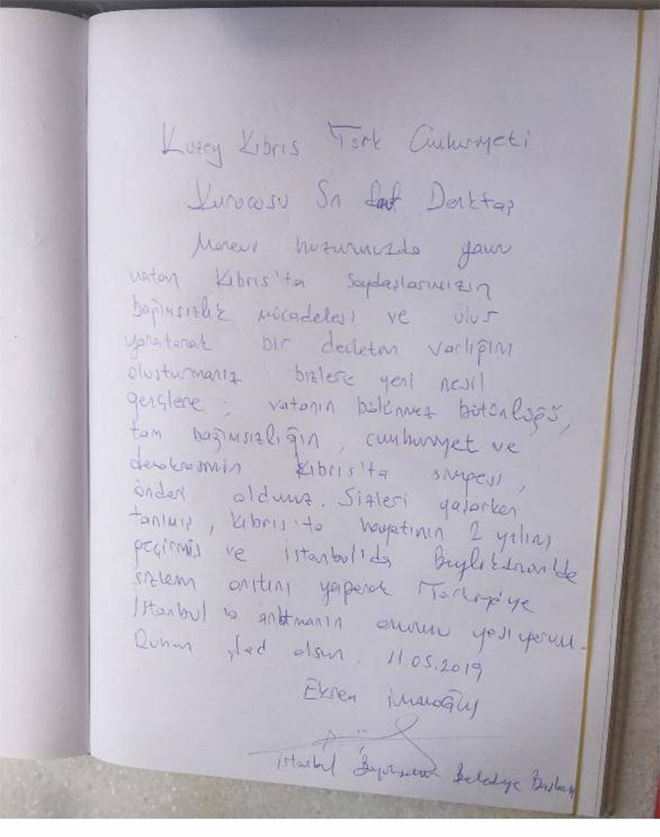 Kuzey Kıbrıs Türk Cumhuriyeti
Kurucusu Sn Denktaş
Manevi huzurunuzda yavru
vatan Kıbrıs'ta soydaşlarımızın
bağımsızlık mücadelesi ve ulus
yaratarak bir devletin varlığını
oluşturmanız bizlere yeni nesil
gençlere; vatanın bölünmez bütünlüğü,
tam bağımsızlığın, cumhuriyet ve
demokrasinin Kıbrıs'ta simgesi,
önderi oldunuz. Sizleri yaşarken
tanımış, Kıbrıs'ta hayatının 2 yılını
geçirmiş ve İstanbul'da Beylikdüzü'nde
sizlerin anıtını yaparak Türkiye'ye
İstanbul'a anlatmanın onurunu yaşıyorum.
Ruhun şad olsun. 11.05.2019
Ekrem İmamoğlu
İstanbul Büyükşehir Belediye Başkanı